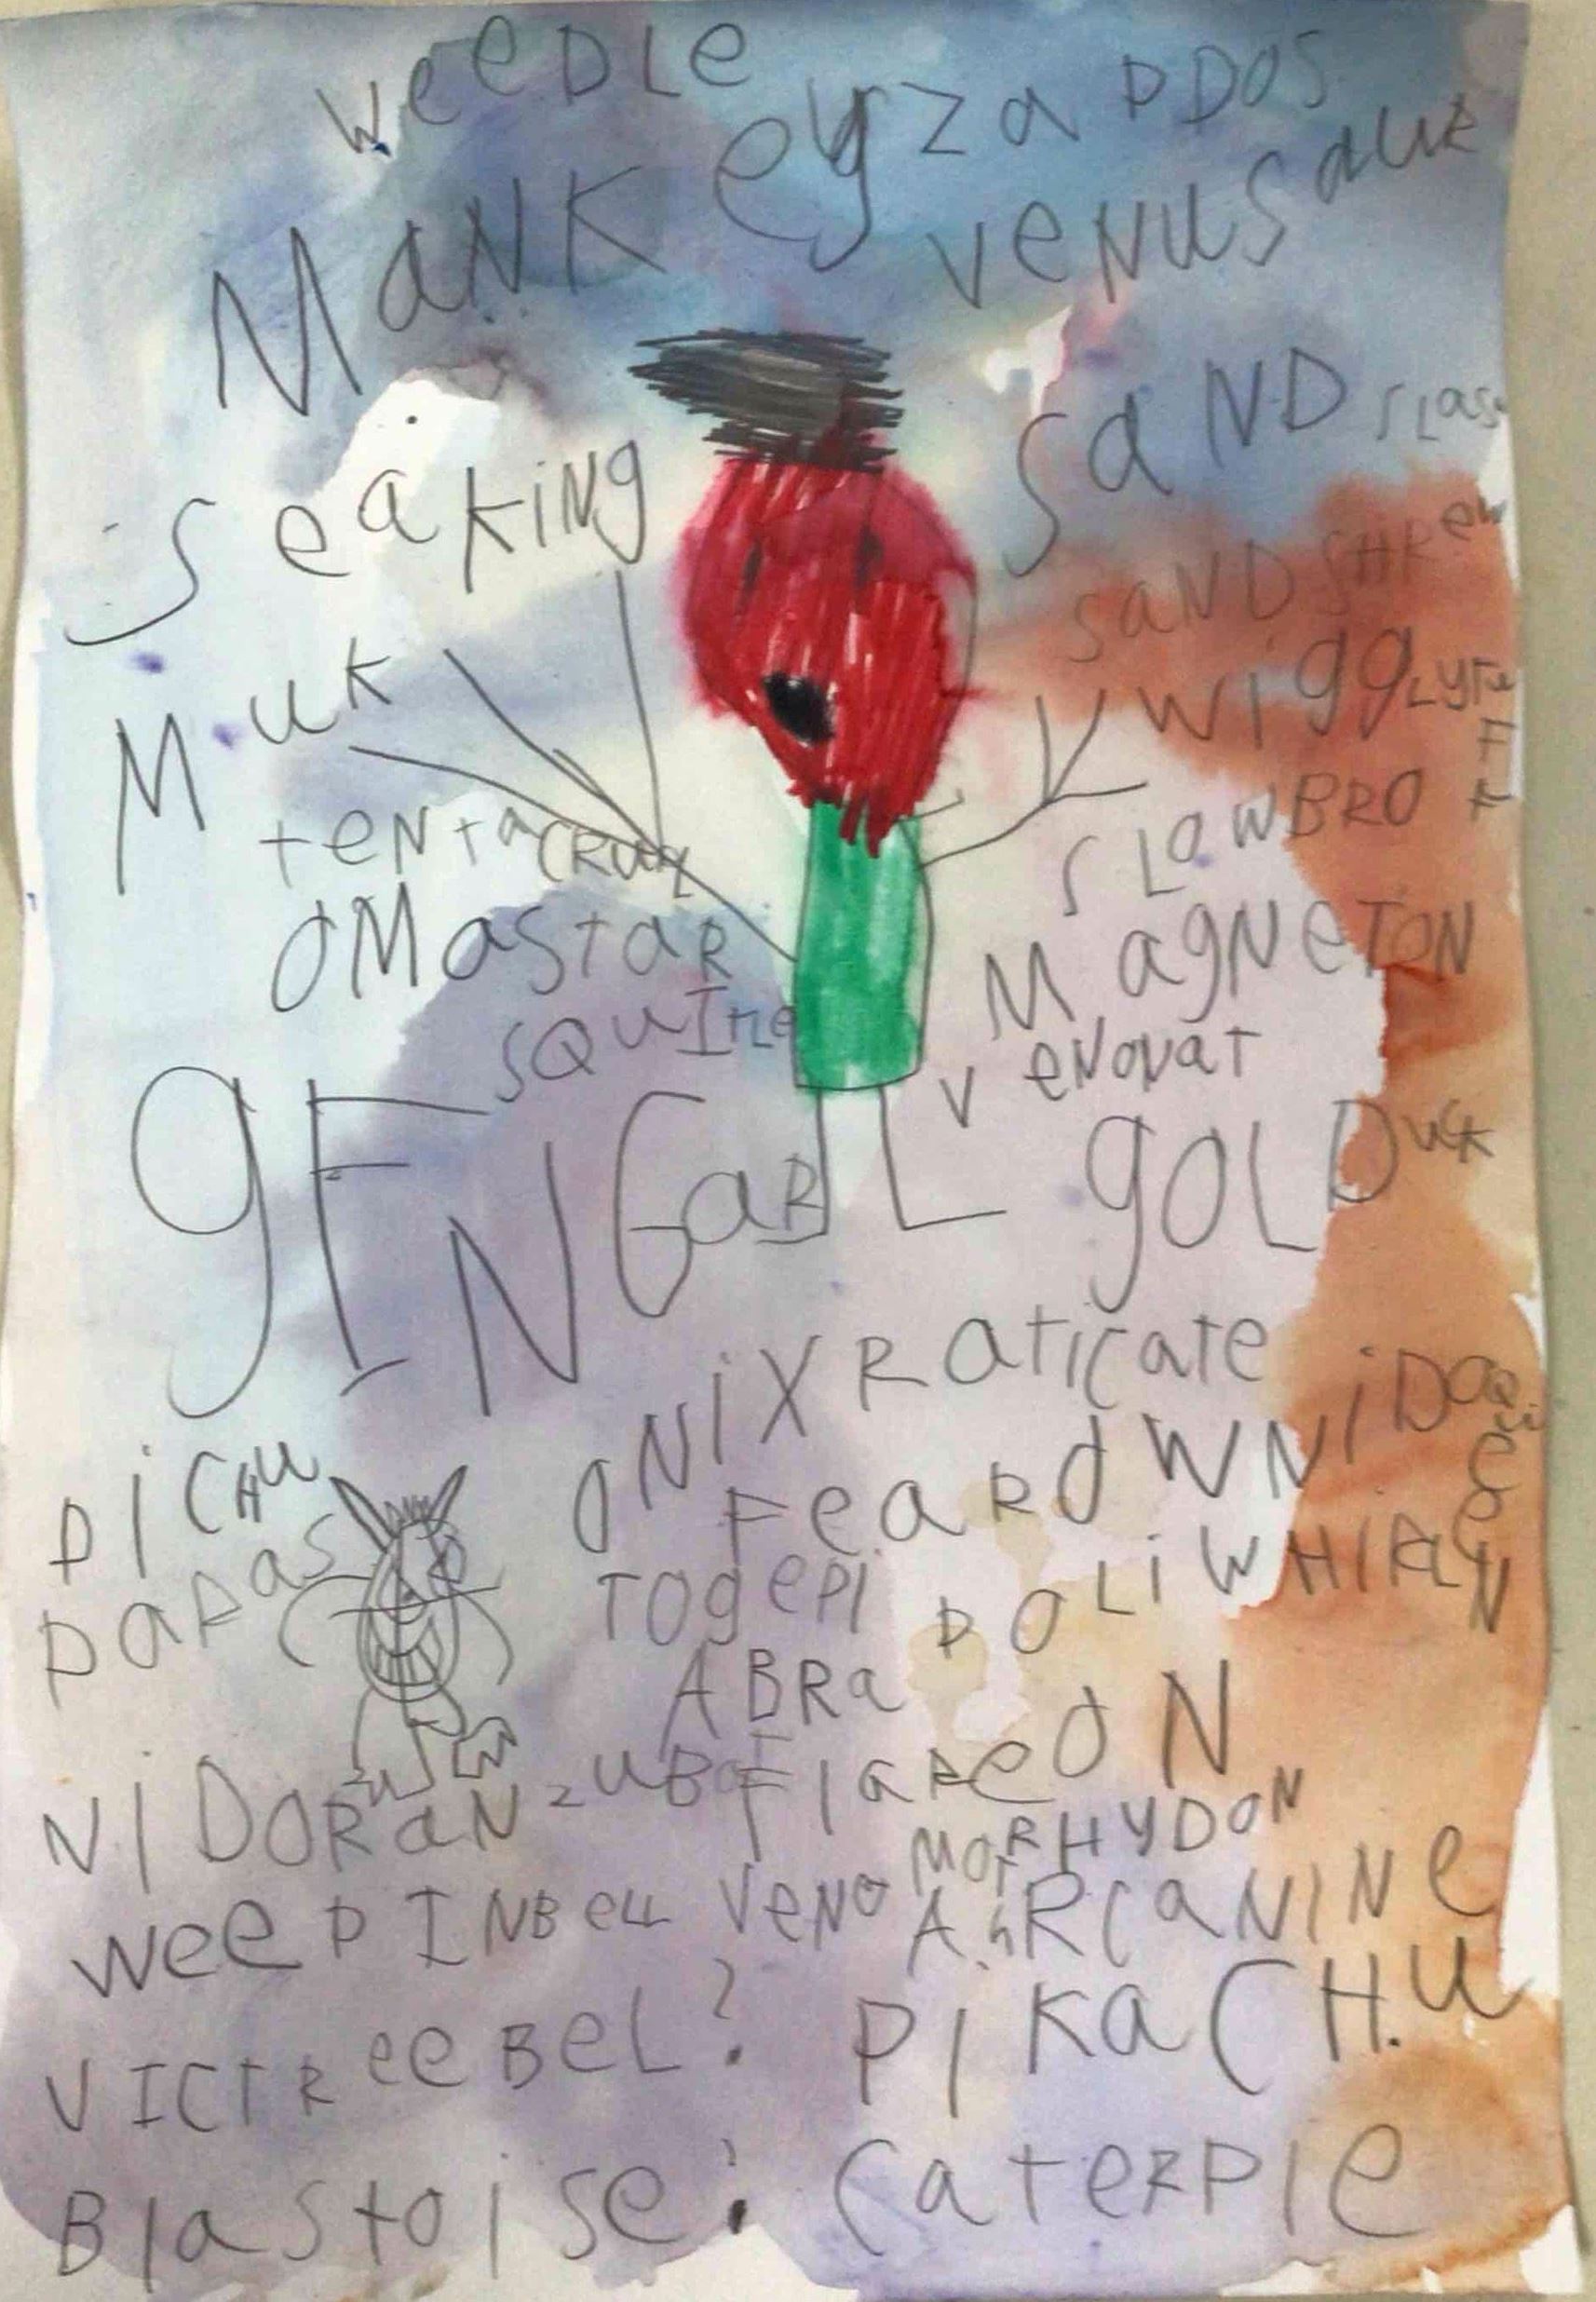 weeDLe
MaNKey zaPDOS
veNuSauR
SeaKiNg
SaND SLaSH
SaNDSHRew
MuK
wiggLyTu
FF
teNtaCRuaL
SLowBRO
OMaStaR
MagNeTON
SQuITLe
veNoNaT
gENGaR
gOLDuck
ONiX
RaticaTe
NiDOQueeN
PiCHu
FeaROW
PaRaS
TOgePI
POLiWHIRL
ABRa
NiDORaN
zuBaT
FlaReON
RHYDON
weePINBeLL
VeNOMOT
H
ARCaNINe
VICTReeBeL?
PiKaCHu
BlaStoise!
CaTeRPIe